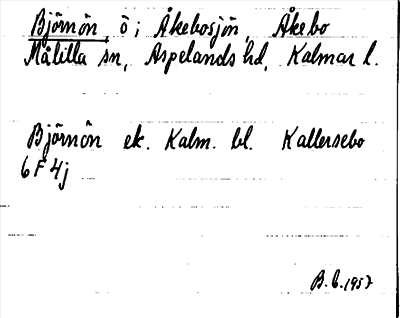 Björnön, ö i Åkebosjön, Åkebo
Målilla sn, Aspelands hd, Kalmar l.
Björnön ek. Kalm. bl. Kallersebo
6 F 4j
B. C. 1957